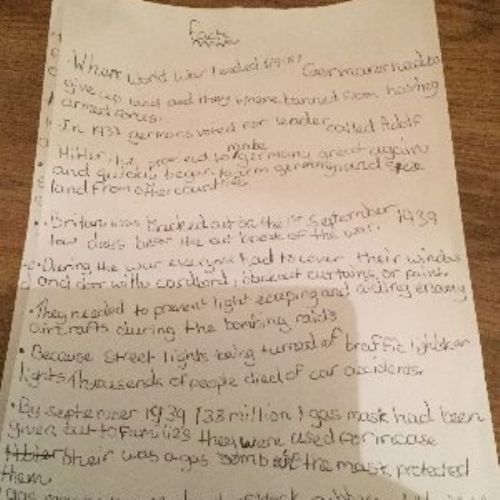 Facts
• When world war 1 ended Germans had to
give up land and they where banned from having
armed forces.
In 1933 germans voted for leader called Adolf
Hitler, he promised to make germany great again
and quickly began to arm germany and
land from other countries
• Britain was blacked out on the 1st September 1939
tow days befor the out break of the war.
• During the war everyone had to cover their windows
and door with cardbord, blackout curtains, or paint.
• They needed to prevent light ecaping and aiding enemy
aircrafts during the bombing raids
• Because street lights being turned of traffic lights car
lights Thousends of people died of car accidents.
• By september 1939 (38 million) gas mask had been
given out to families they were used for incase
their was a gas bomb the mask protected
them